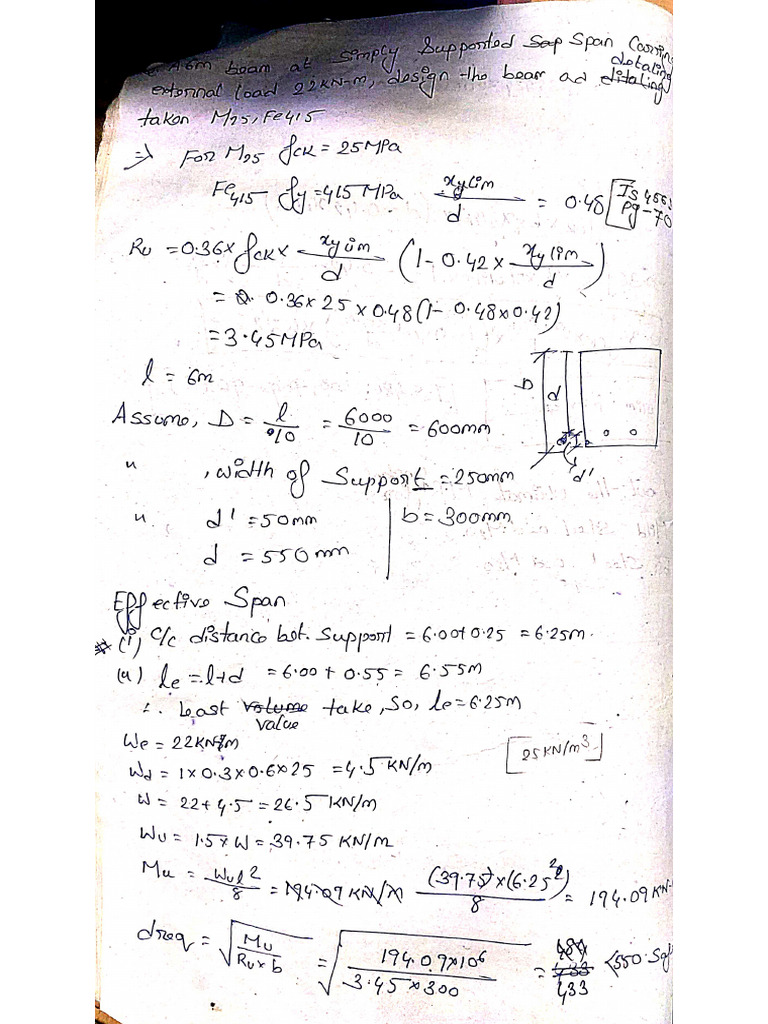 A 6m beam at simply Supported Sap Span Carring
external load 22kN-m, design the beam ad ditaling detaling
taken M25, Fe415
⇒ For M25 fck = 25MPa
Fe415 fy = 415 MPa xulim/d = 0.48 [IS 456: Pg-70
Ru = 0.36 x fck x xulim/d (1 - 0.42 x xulim/d)
= 0.36 x 25 x 0.48 (1 - 0.48 x 0.42)
= 3.45MPa
l = 6m
D d d'
Assume, D = l/10 = 6000/10 = 600mm
" , width of Support = 250mm
" , d' = 50mm | b = 300mm
d = 550mm
Effective Span
(i) c/c distance bet. Support = 6.00 + 0.25 = 6.25m.
(ii) le = l+d = 6.00 + 0.55 = 6.55m
∴ Least volume value take, So, le = 6.25m
We = 22KN/m [25 KN/m³]
Wd = 1 x 0.3 x 0.6 x 25 = 4.5 KN/m
W = 22 + 4.5 = 26.5 KN/m
Wu = 1.5 x W = 39.75 KN/m
Mu = Wul²/8 = 194.09 KN/m (39.75) x (6.25²)/8 = 194.09 KN-
dreq = √Mu/Ru x b = √194.09 x 10⁶/3.45 x 300 = 433 433 < 550 Saf